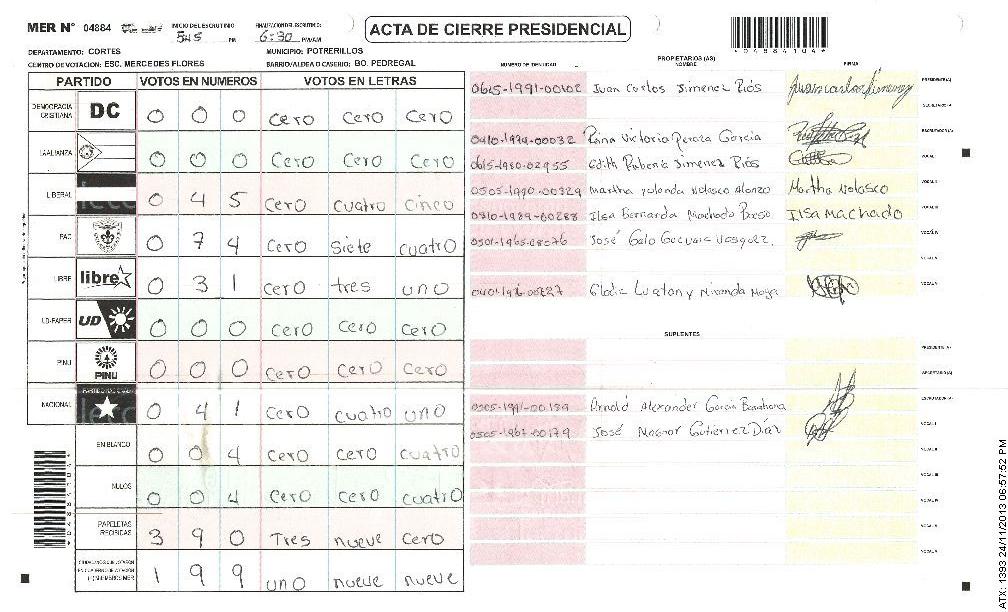 MER N° 04884 INICIO DEL ESCRUTINIO 5:45 PM FINALIZACION DEL ESCRUTINIO: 6:30 PM/AM
ACTA DE CIERRE PRESIDENCIAL
DEPARTAMENTO: CORTES MUNICIPIO: POTRERILLOS
CENTRO DE VOTACION: ESC. MERCEDES FLORES BARRIO/ALDEA O CASERIO: BO. PEDREGAL
PARTIDO VOTOS EN NUMEROS VOTOS EN LETRAS
DEMOCRACIA CRISTIANA DC 0 0 0 cero cero cero
LA ALIANZA 0 0 0 cero cero cero
LIBERAL 0 4 5 cero cuatro cinco
PAC 0 7 4 cero siete cuatro
LIBRE libre 0 3 1 cero tres uno
UD-FAPER UD 0 0 0 cero cero cero
PINU PINU 0 0 0 cero cero cero
NACIONAL 0 4 1 cero cuatro uno
EN BLANCO 0 0 4 cero cero cuatro
NULOS 0 0 4 cero cero cuatro
PAPELETAS RECIBIDAS 3 9 0 Tres nueve cero
1 9 9 uno nueve nueve
PROPIETARIOS (AS)
NUMERO DE IDENTIDAD NOMBRE FIRMA
0615-1991-00102 Juan Carlos Jimenez Riós PRESIDENTE(A)
SECRETARIO/A
0410-1974-00032 Rina Victoria Peraza Garcia ESCRUTADOR(A)
0615-1980-02955 Edith Rubenia Jimenez Riós VOCAL I
0505-1990-00329 Martha Yolonda Velasco Alonzo Martha Velasco VOCAL II
Ilsa Bernarda Machado Ilsa Machado VOCAL III
José Galo VOCAL IV
VOCAL V
Miranda VOCAL VI
SUPLENTES
PRESIDENTE (A)
SECRETARIO(A)
Arnold Alexander Garcia ESCRUTADOR(A)
0505-1967-00179 José Gutierrez Díaz VOCAL I
VOCAL II
VOCAL III
VOCAL IV
VOCAL V
VOCAL VI
ATX: 1393 24/11/2013 06:57:52 PM